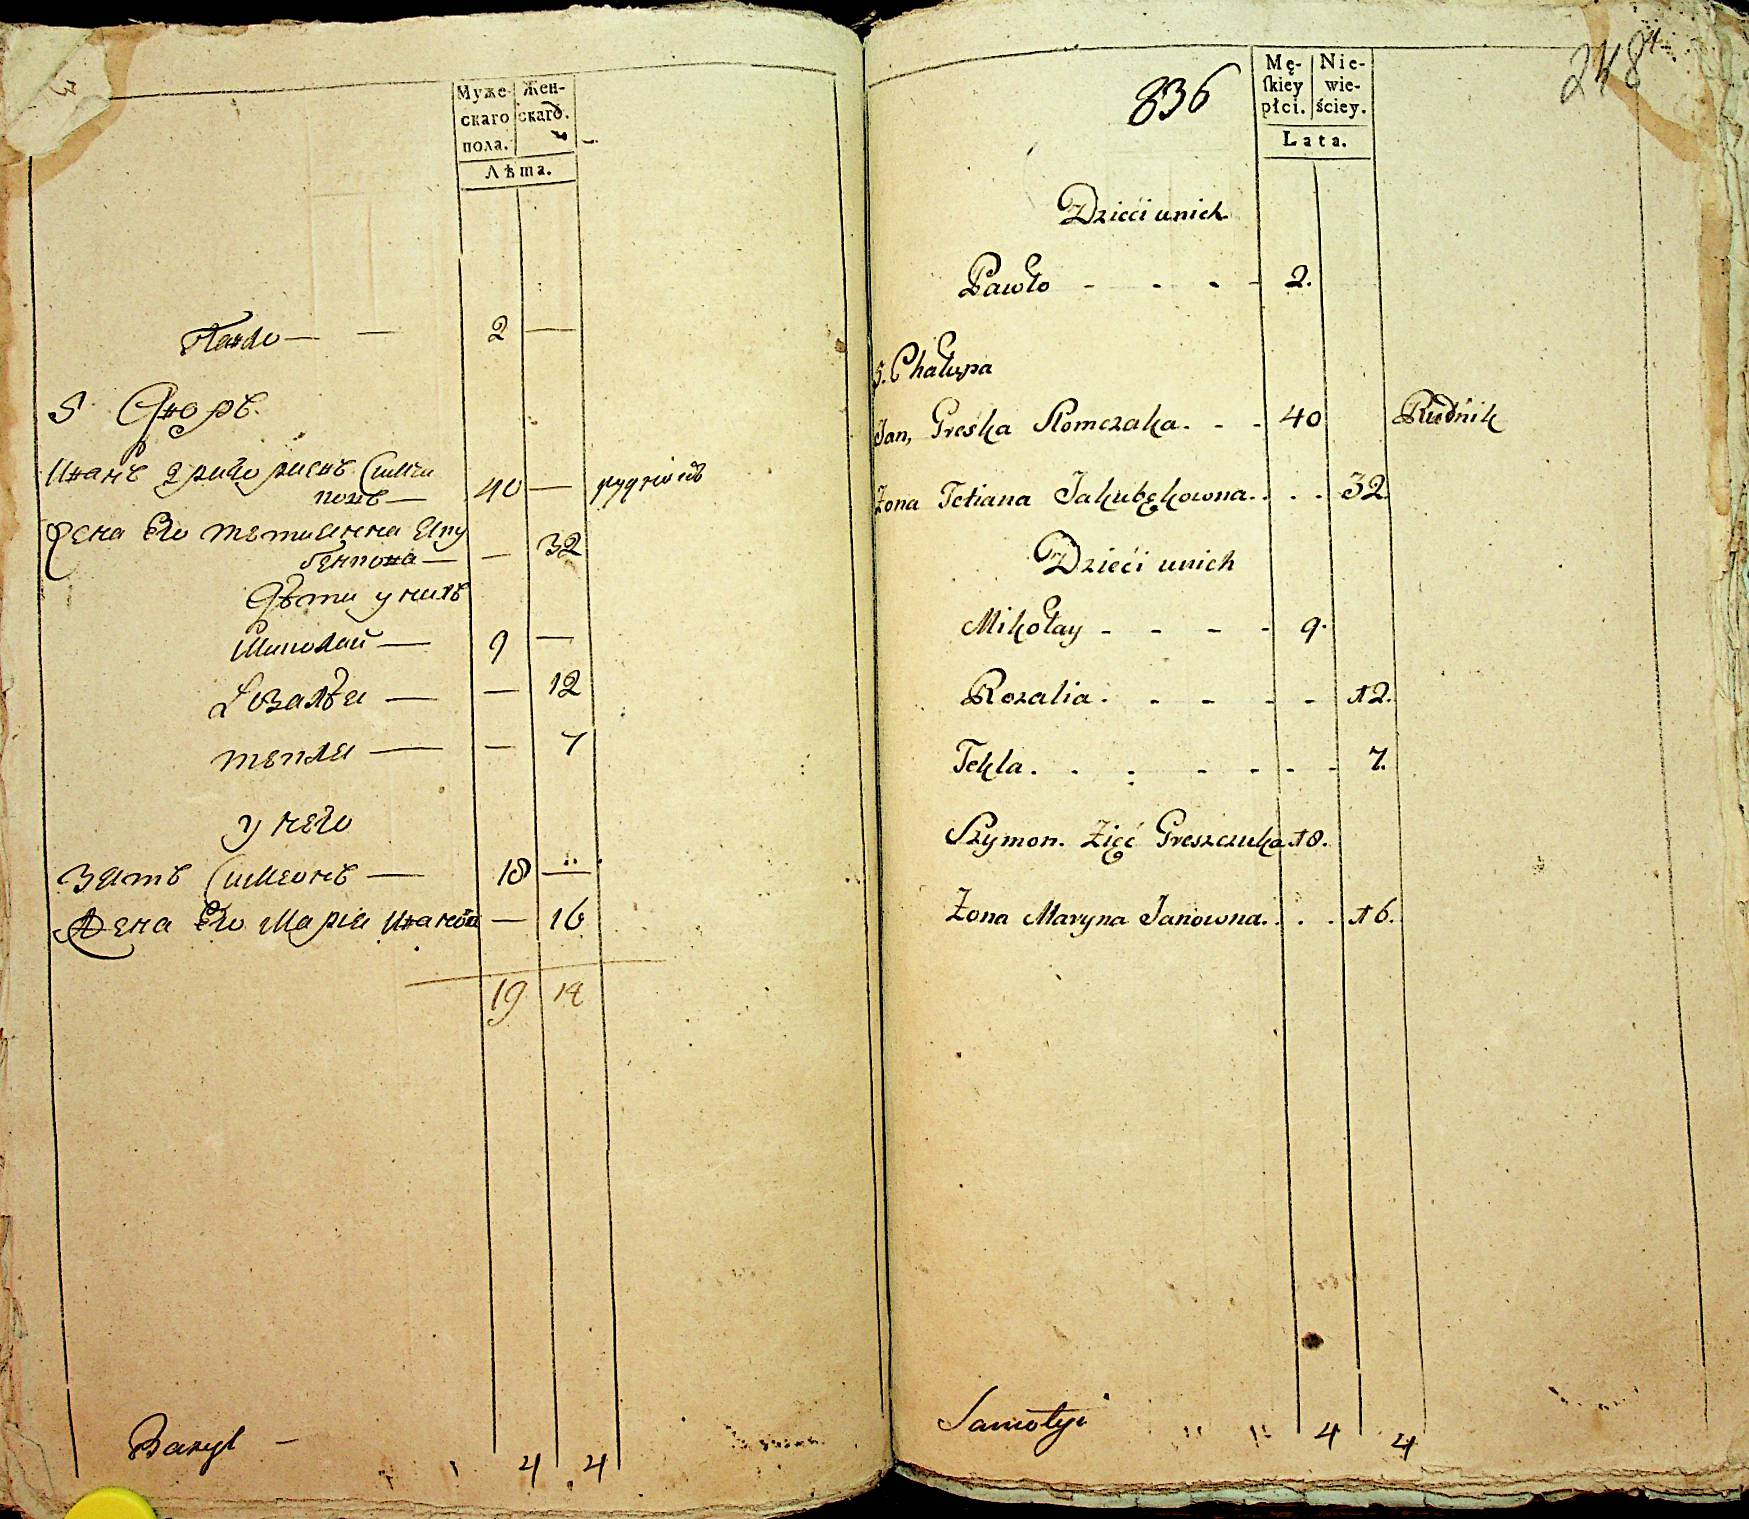 Муже-
скаго
пола.
Жен-
скаго.
Лѣта.
Павло — — 2 —
5 Дворъ.
Иванъ Григориевъ
40 — рудникъ
Жена Его Тетианна Яку
бенкова — — 32
Дѣти у нихъ
Миколай — 9 —
Розалѣя — — 12
Текля — — 7
у него
Зять Симеонъ — 18 —
Жена Его Марія Иванова — 16
19 14
4 4
836
248
Mę-
ſkiey
płci.
Nie-
wie-
ściey.
Lata.
Dzieći unich
Pawło - - - - 2.
5. Chałupa
Jan, Greska Klomczaka. - - 40 Rudnik
Żona Tetiana Jakubękowna. . . . 32.
Dzieći unich
Mikołay - - - - 9.
Rozalia. - - - - 12.
Tekla. . . - - - - 7.
Szymon. Zięć Greszczuka 18.
Żona Maryna Janowna. . . . 16.
4 4